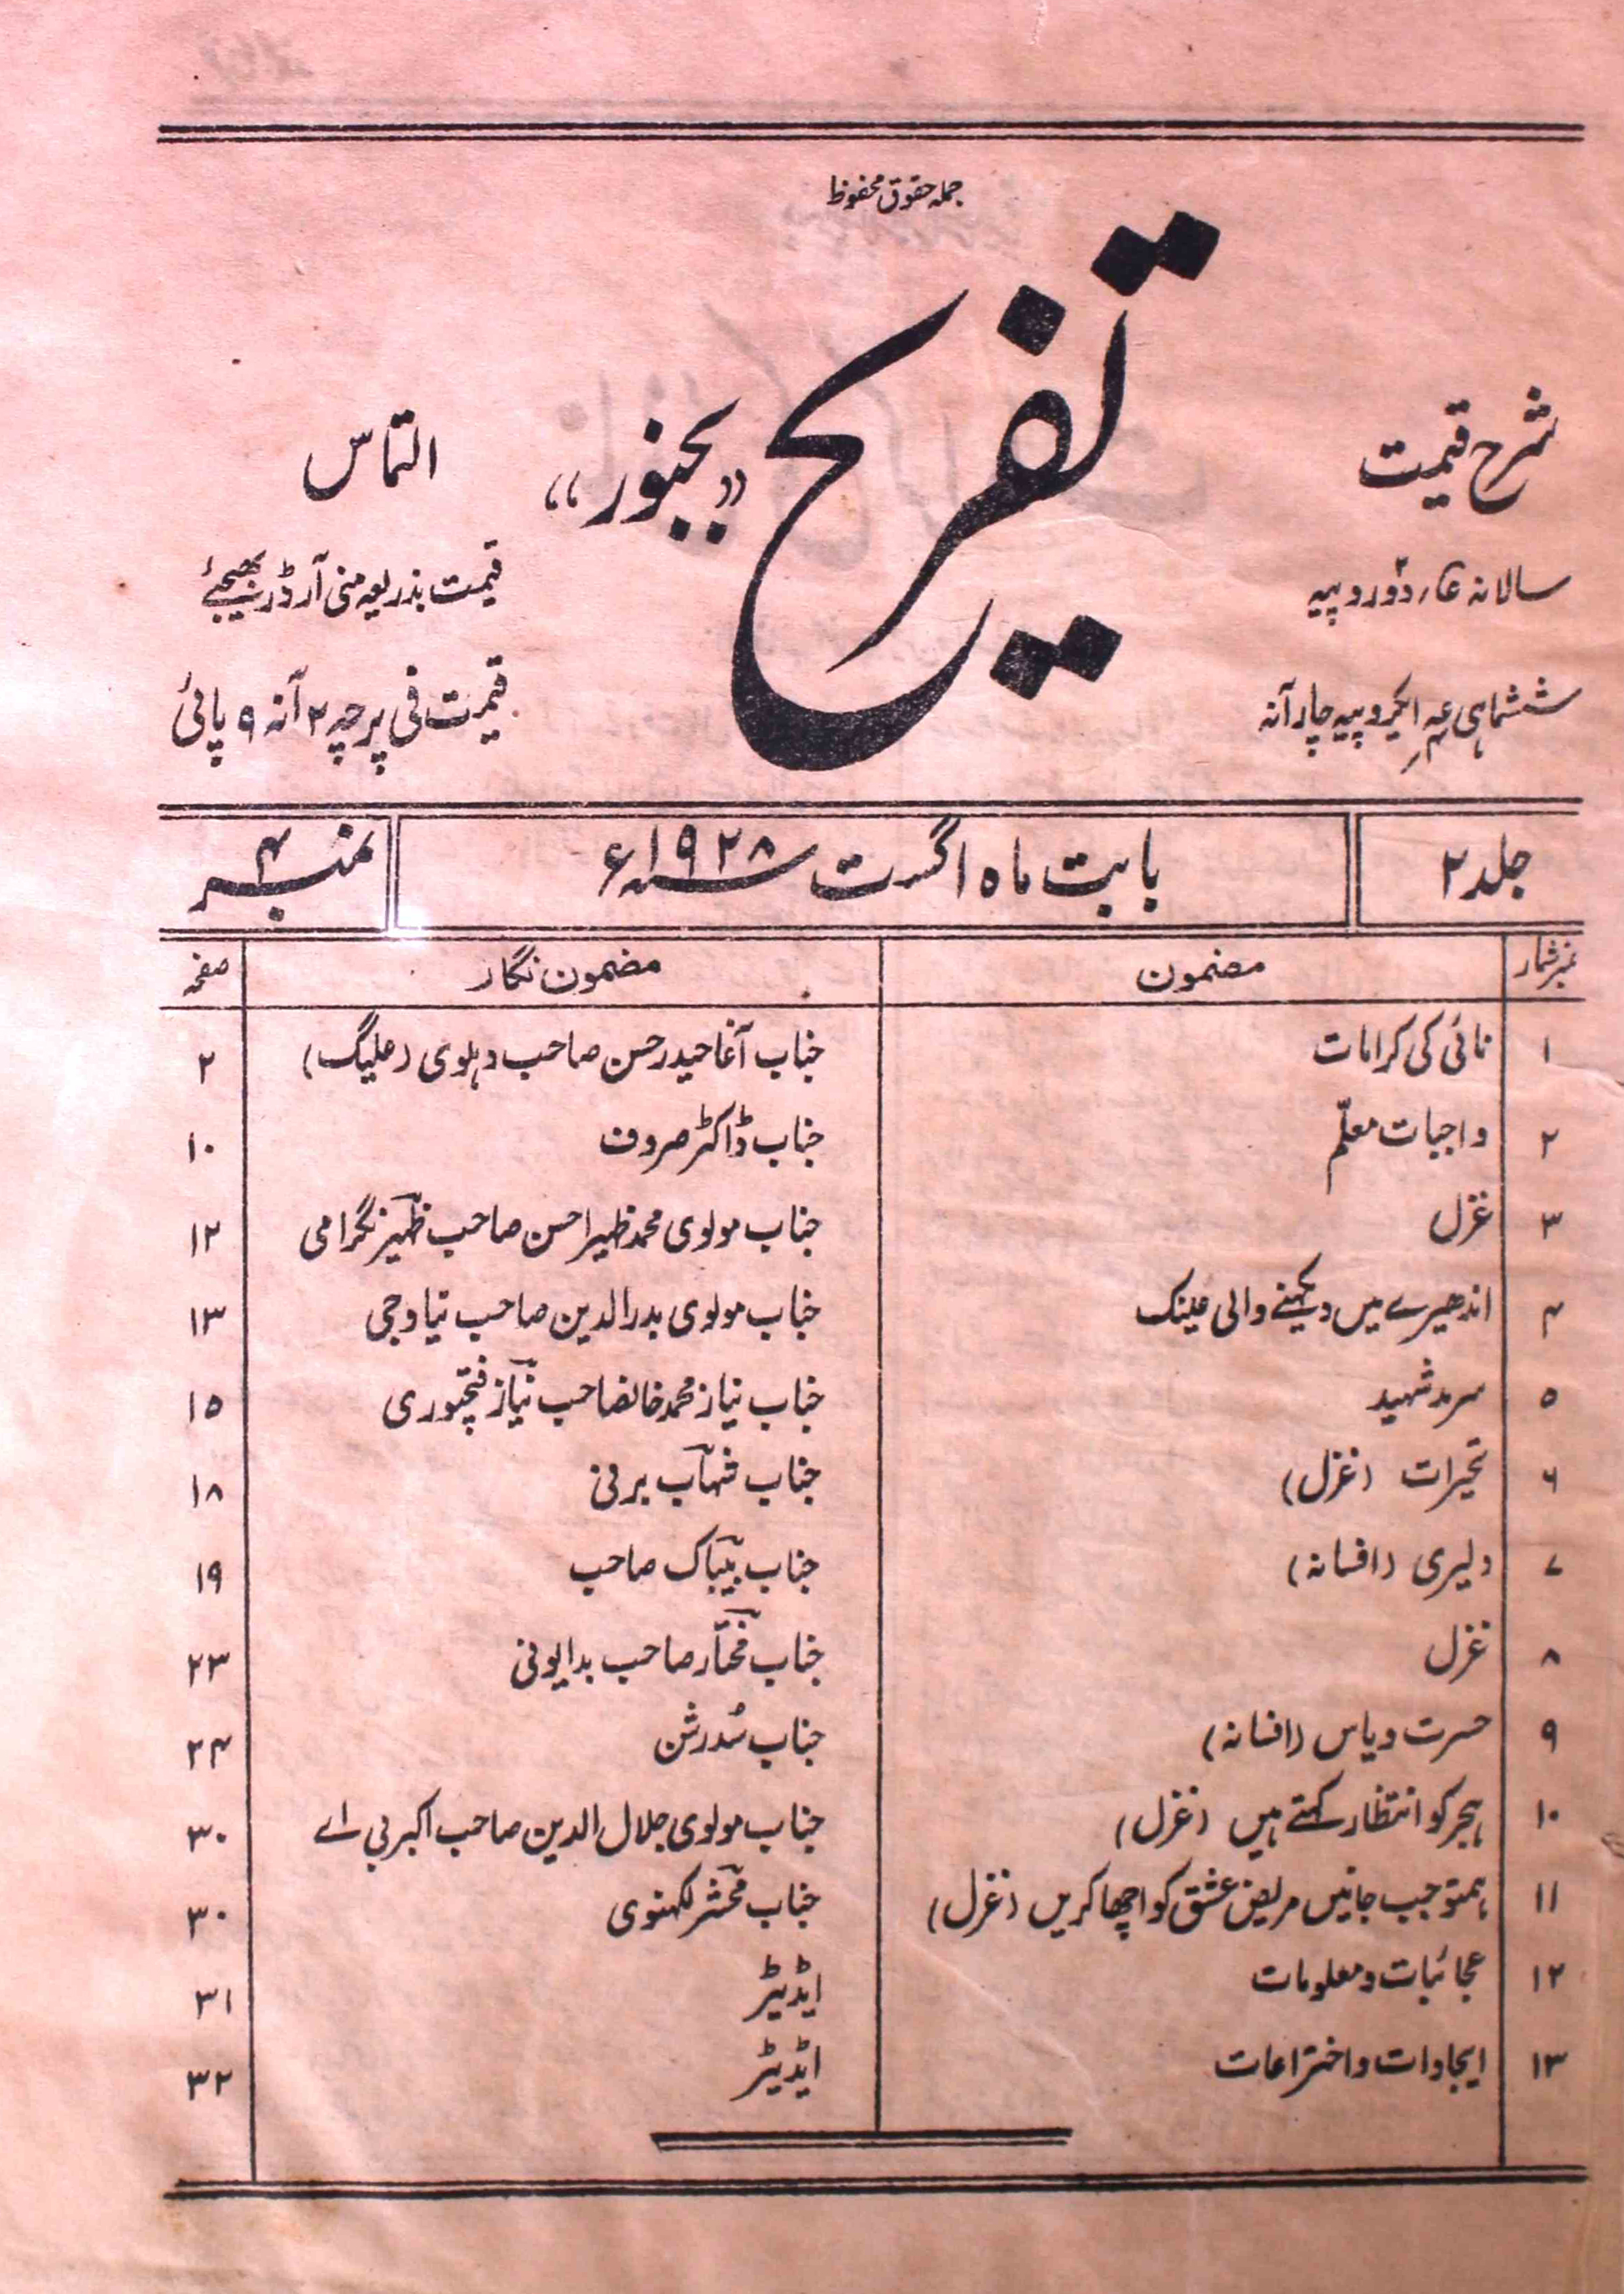 جملہ حقوق محفوظ
تفریح "بجنور"
شرح قیمت
سالانہ دو روپیہ
ششماہی ایکروپیہ چار آنہ
التماس
قیمت بذریعہ منی آرڈر بھیجئے
قیمت فی پرچہ ۲ آنہ ۹ پائی
جلد ۲ بابت ماہ اگست سنہ ۱۹۲۸ء نمبر ۴
نمبر شمار مضمون مضمون نگار صفحہ
۱ نائی کی کرامات جناب آغا حیدر حسن صاحب دہلوی (علیگ) ۲
۲ واجبات معلّم جناب ڈاکٹر صروف ۱۰
۳ غزل جناب مولوی محمد ظہیر احسن صاحب ظہیر نگرامی ۱۲
۴ اندھیرے میں دیکھنے والی عینک جناب مولوی بدرالدین صاحب نیاوجی ۱۳
۵ سرمد شہید جناب نیاز محمد خانصاحب نیاز فتحپوری ۱۵
۶ تحیرات (غزل) جناب شہاب برنی ۱۸
۷ دلیری (افسانہ) جناب بیباک صاحب ۱۹
۸ غزل جناب مختار صاحب بدایونی ۲۳
۹ حسرت ویاس (افسانہ) جناب سُدرشن ۲۴
۱۰ ہجر کو انتظار کہتے ہیں (غزل) جناب مولوی جلال الدین صاحب اکبر بی اے ۳۰
۱۱ ہمتو جب جانیں مریض عشق کو اچھا کریں (غزل) جناب محشر لکہنوی ۳۰
۱۲ عجائبات ومعلومات ایڈیٹر ۳۱
۱۳ ایجادات واختراعات ایڈیٹر ۳۲